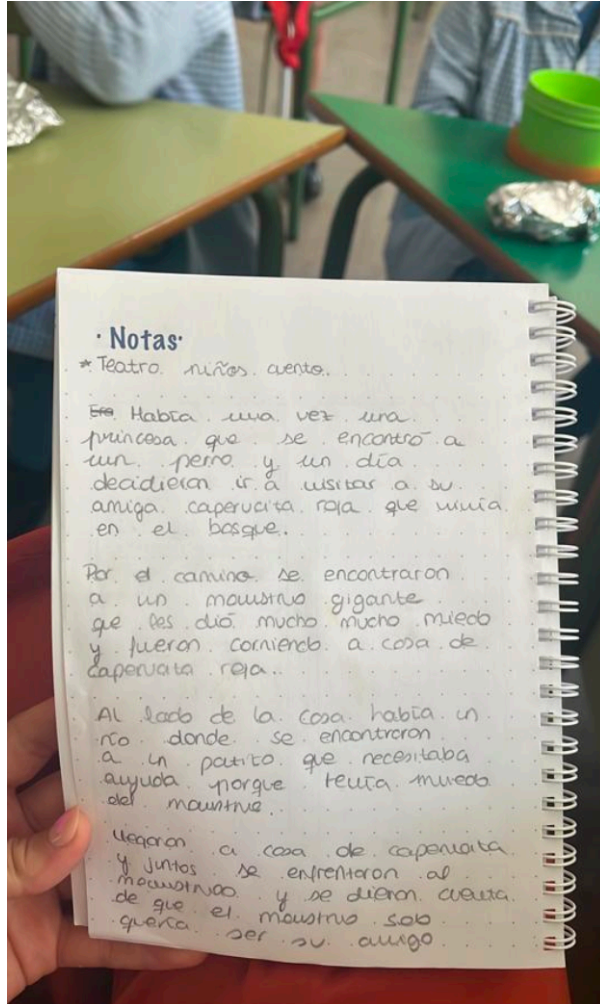 · Notas·
* Teatro niños cuento.
Era Había una vez una
princesa que se encontró a
un perro y un día
decidieron ir a visitar a su
amiga caperucita roja que vivía
en el bosque.
Por el camino se encontraron
a un moustruo gigante
que les dió mucho mucho miedo
y fueron corriendo a casa de
caperucita roja.
Al lado de la casa había un
río donde se encontraron
a un patito que necesitaba
ayuda porque tenía miedo
del moustruo.
Llegaron a casa de caperucita
y juntos se enfrentaron al
moustruo y se dieron cuenta
de que el moustruo solo
quería ser su amigo